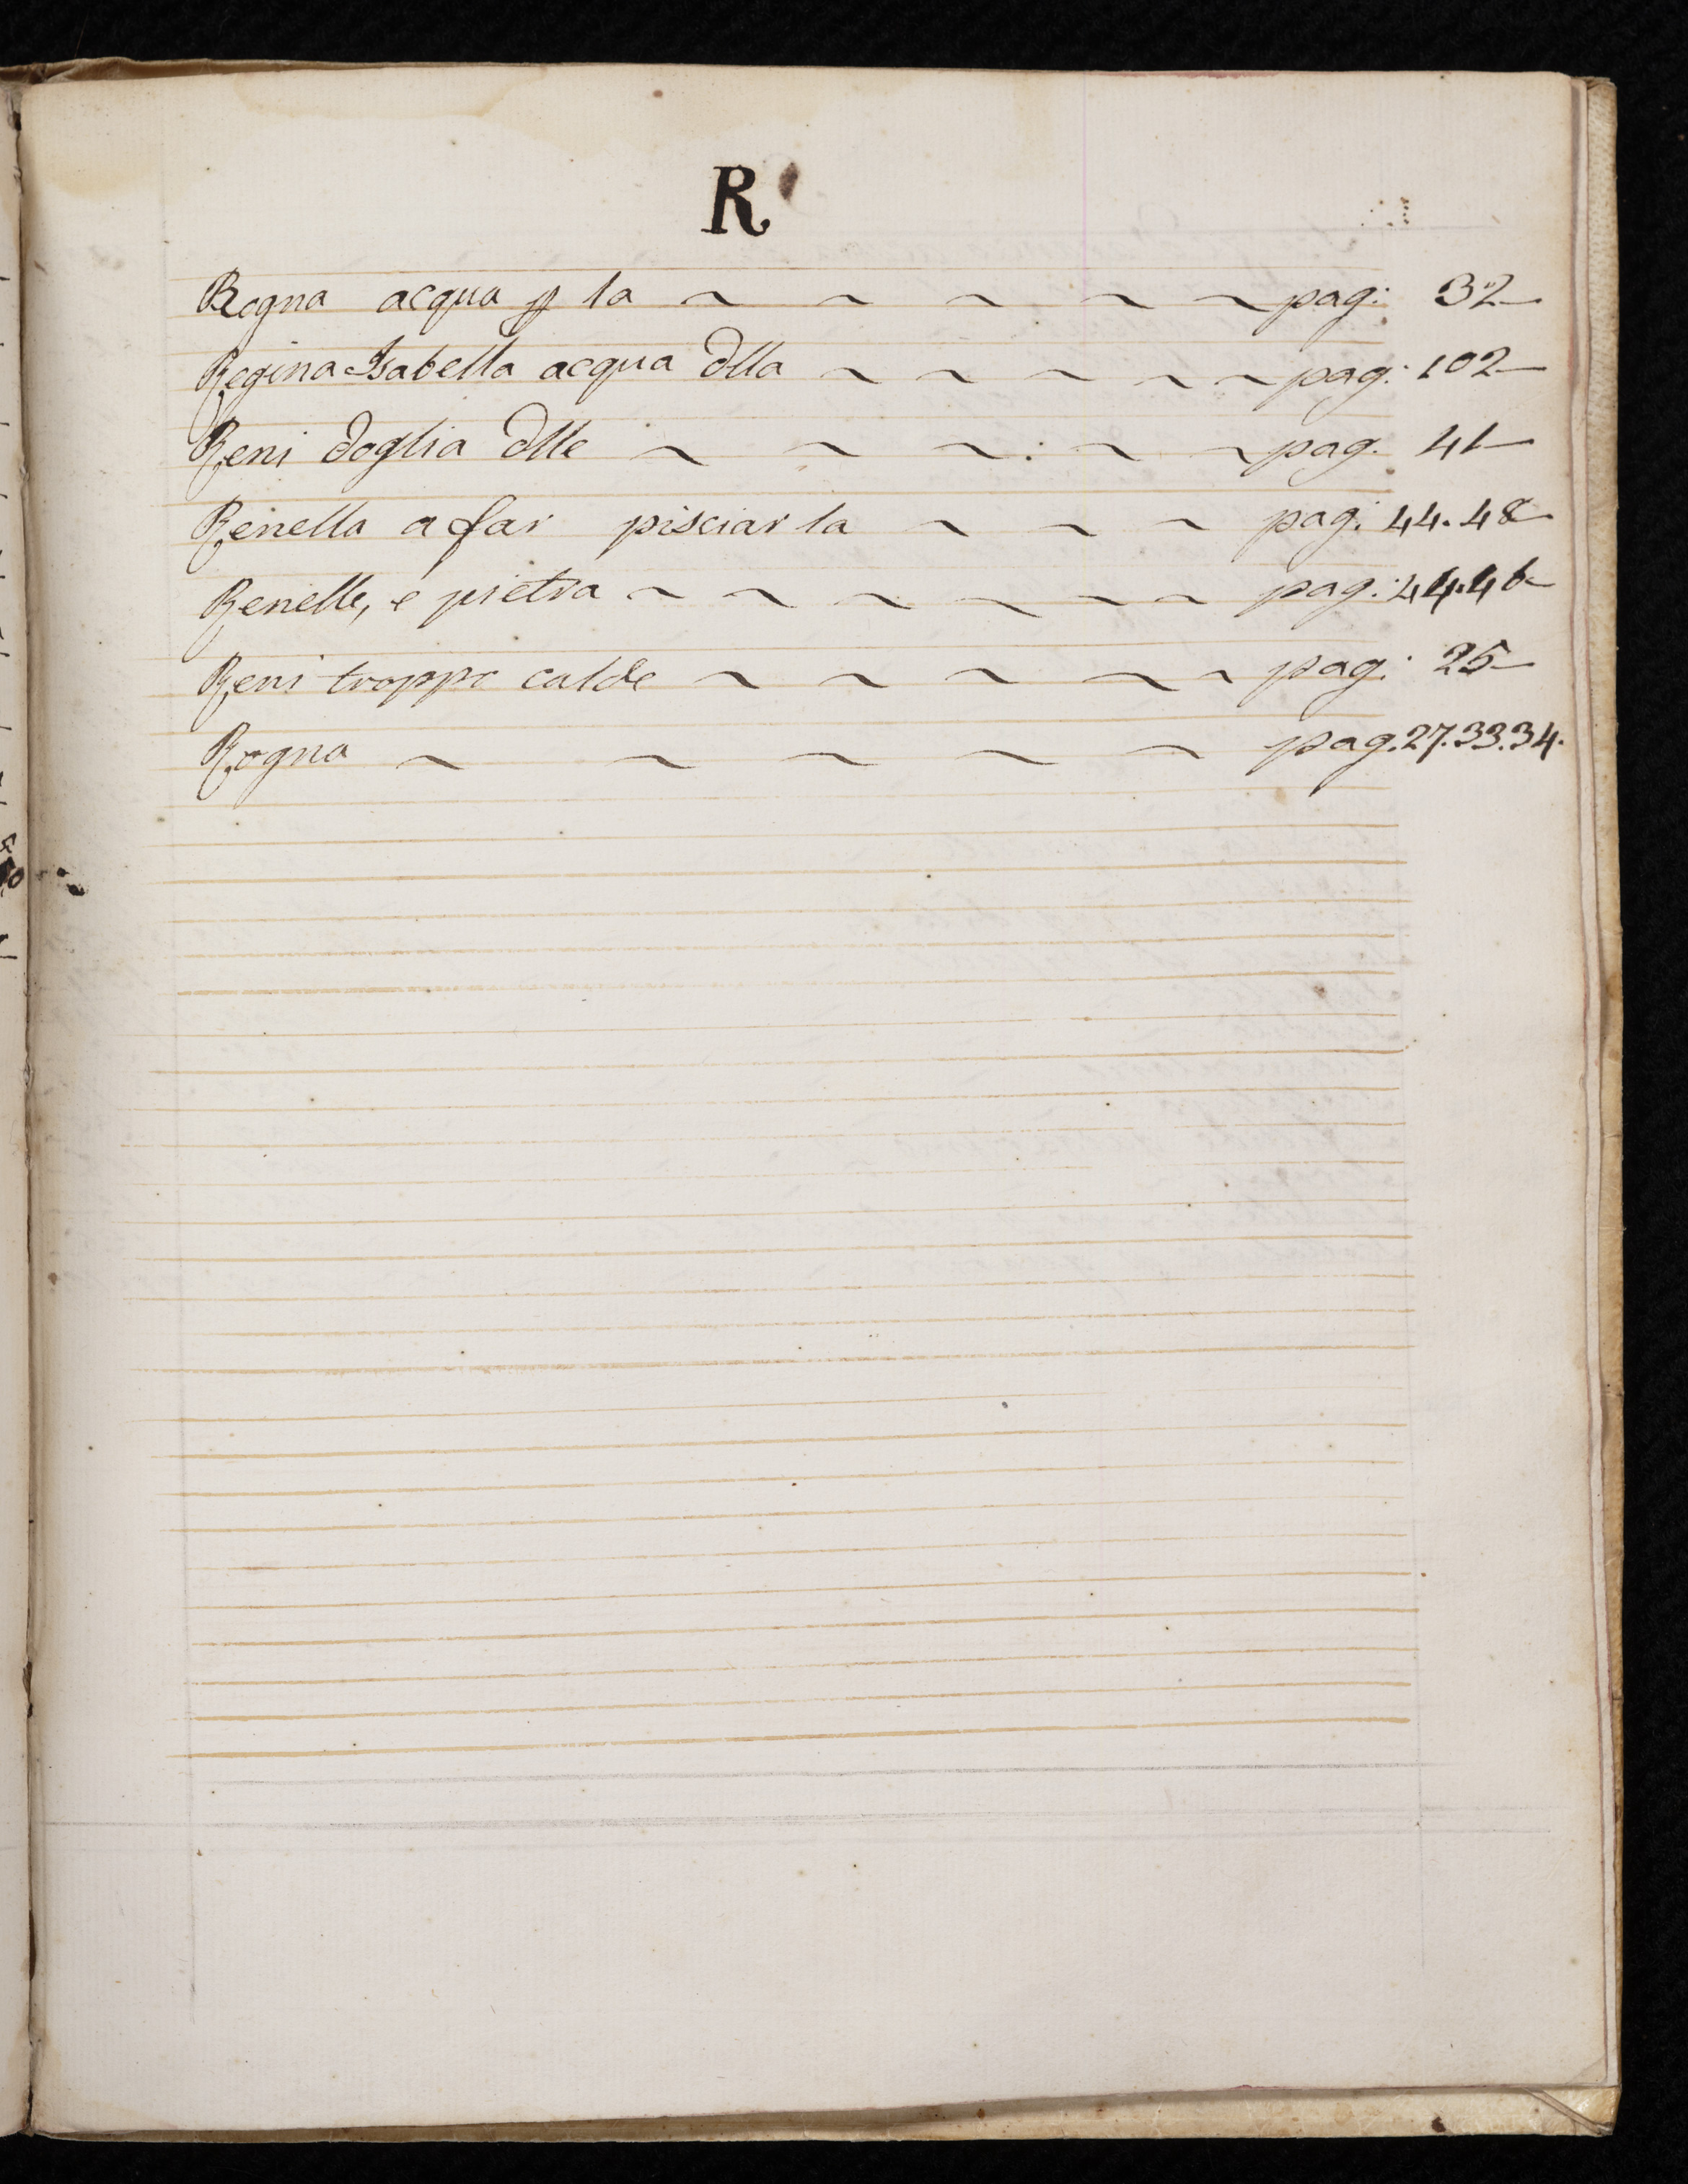 R
Rogna acqua p la ~ ~ ~ ~ ~ pag: 32
Regina Isabella acqua dlla ~ ~ ~ ~ ~ pag: 102
Reni doglia dlle ~ ~ ~ : ~ ~ pag. 41
Renella a far pisciar la ~ ~ ~ pag: 44. 48
Renelle, e pietra ~ ~ ~ ~ ~ ~ pag: 44. 46
Reni troppo calde ~ ~ ~ ~ ~ pag: 25
Rogna ~ ~ ~ ~ ~ pag. 27. 33. 34.